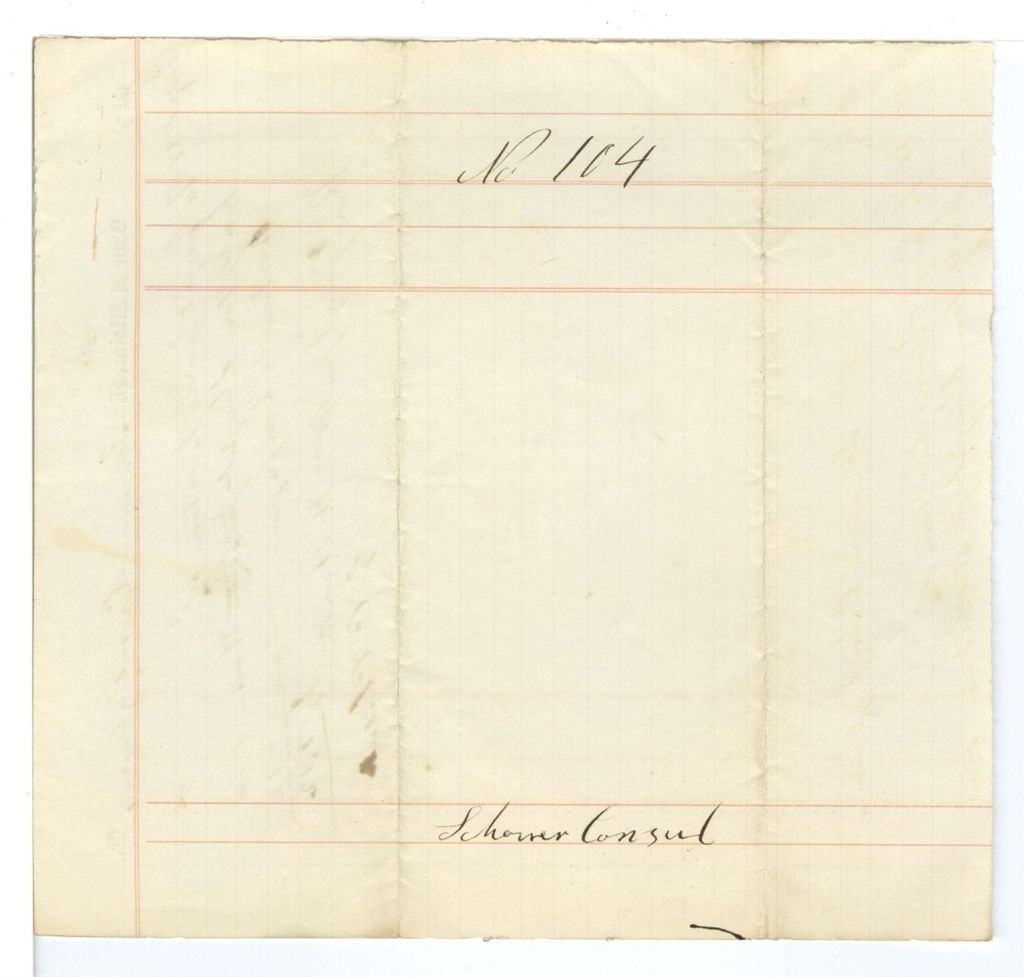 No 104
Schower Consul